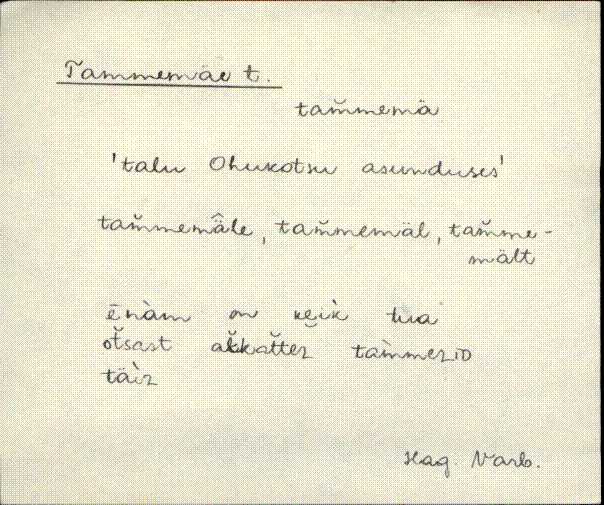 Tammemäe t.
tam̆memä
'talu Ohukotsu asunduses'
tam̆memä̂le, tam̆memäl, tam̆me-
mält
ēnàm on keik tua
ot̆sast ak̆kat̆tez tam̀mezID
täìz
Hag. Varb.